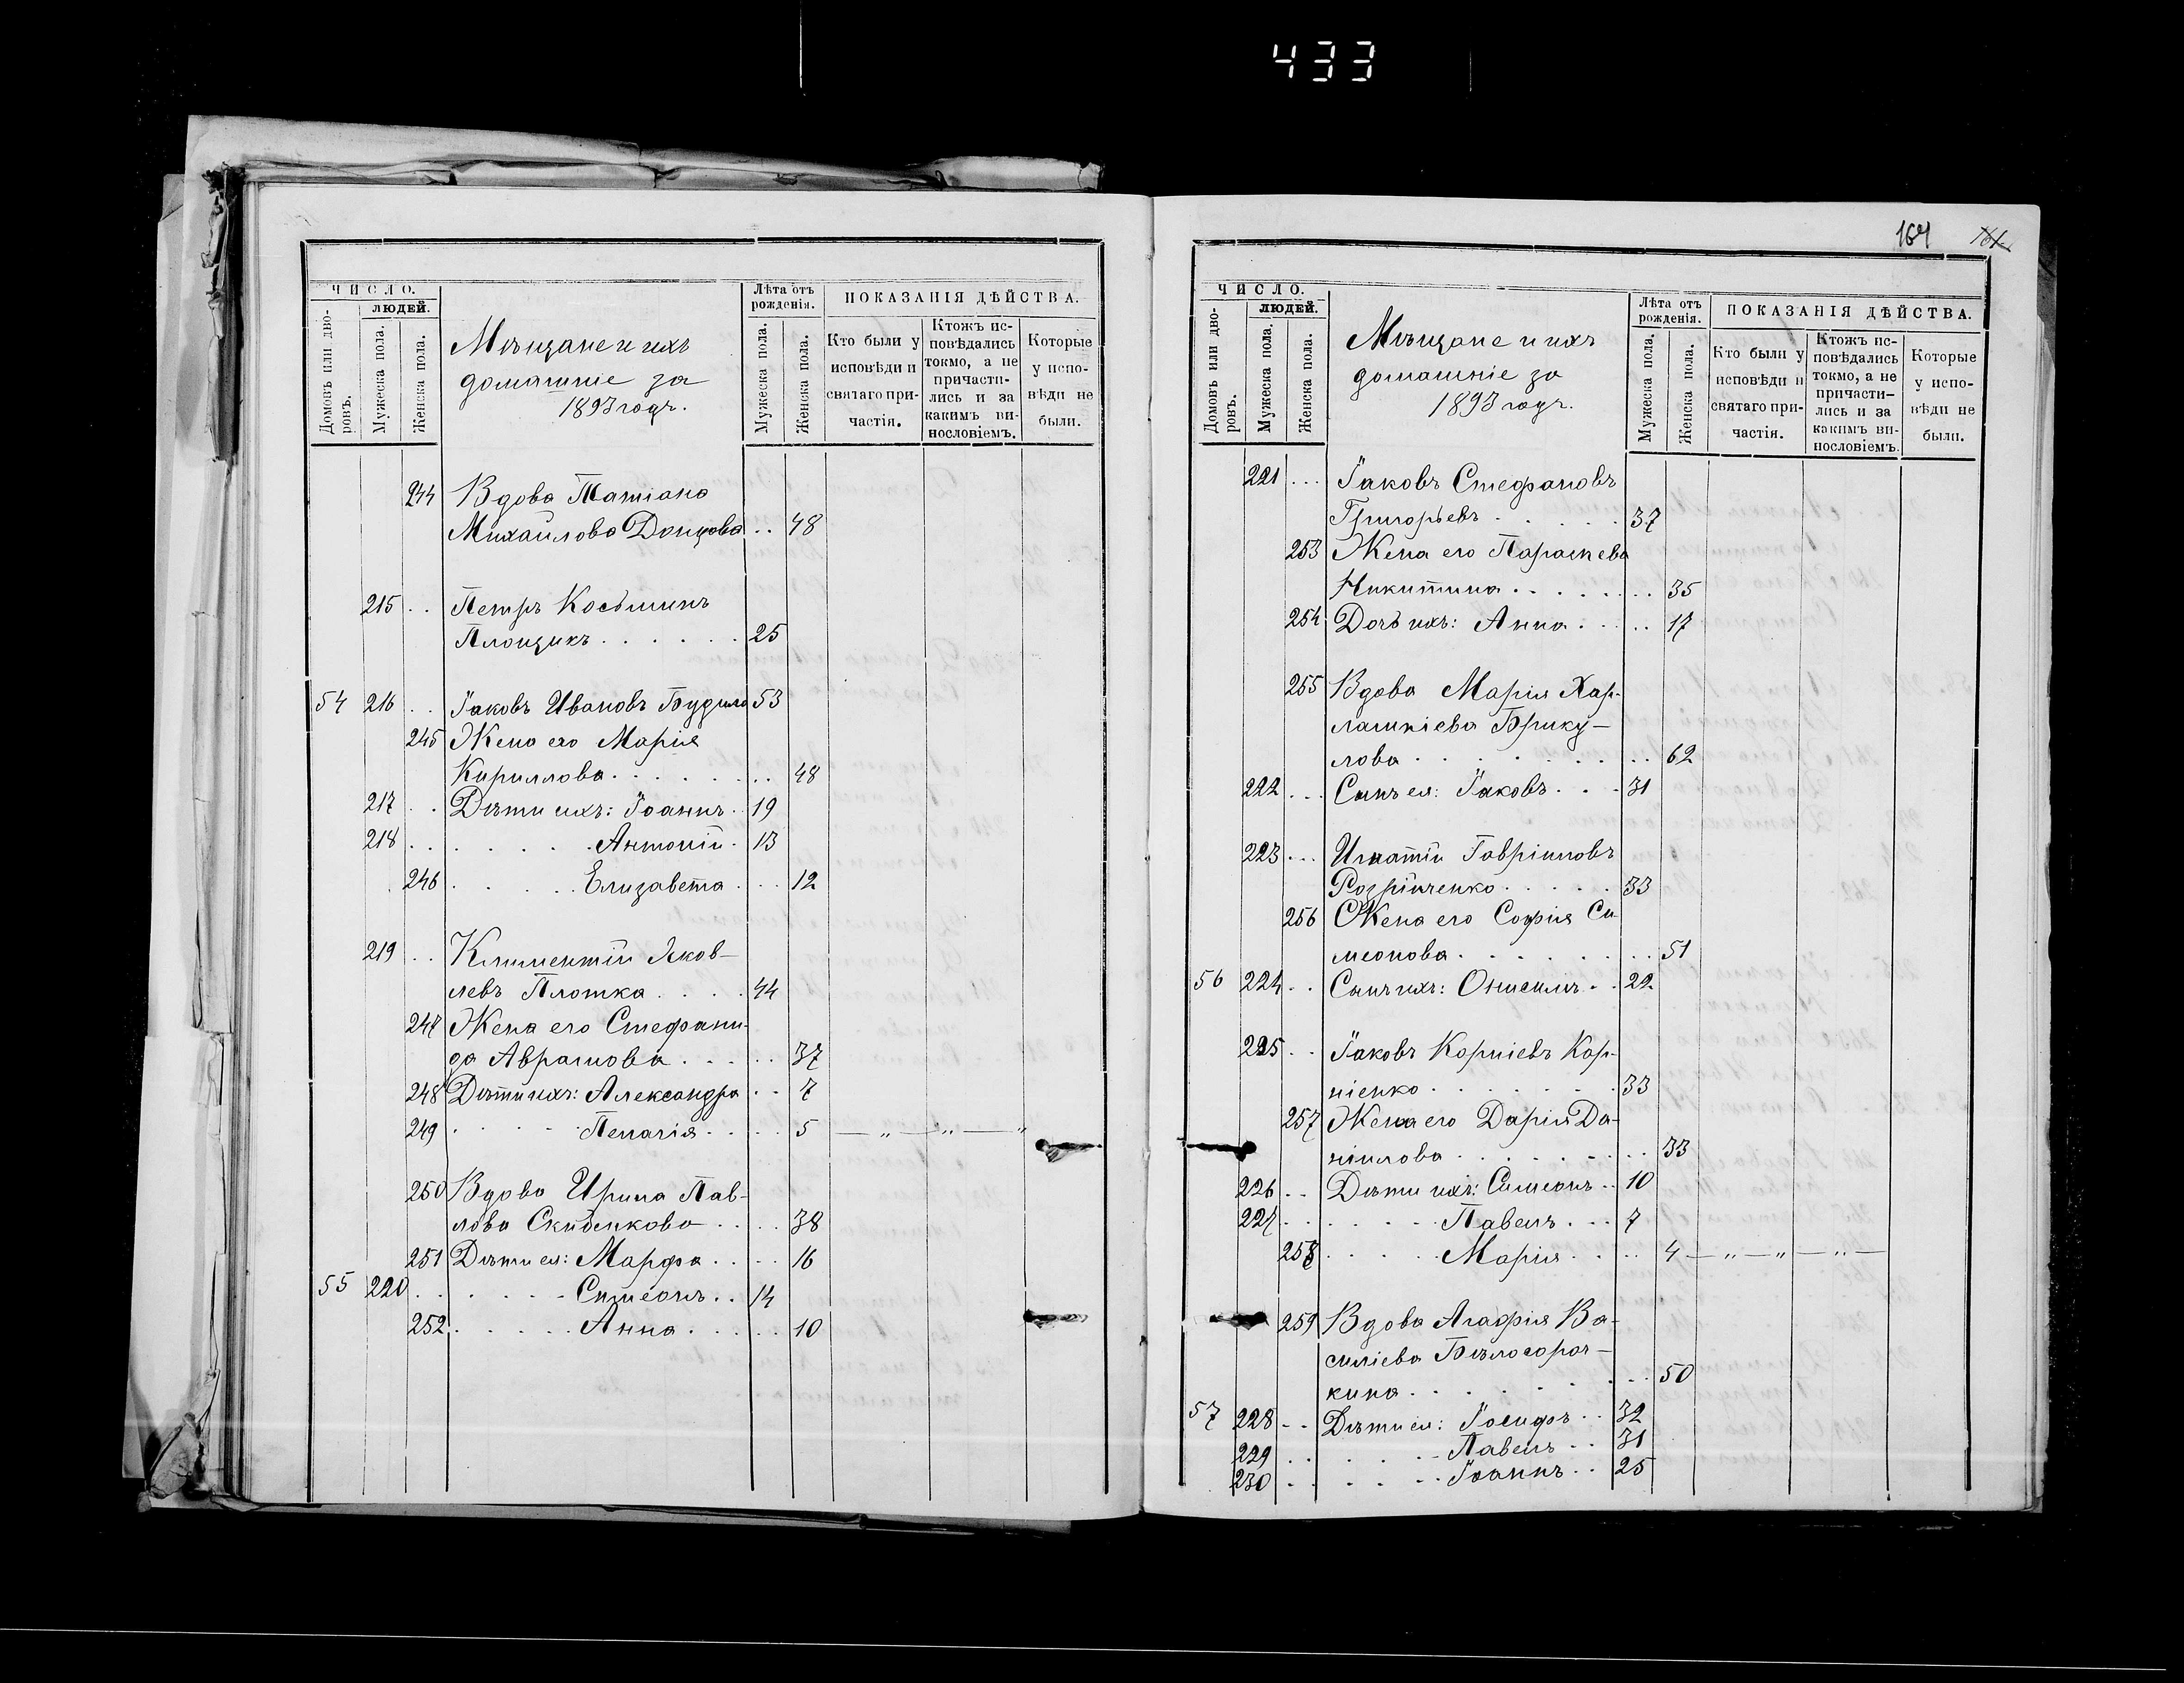 433
ЧИСЛО.
людей.
Домовъ или дворовъ.
Мужеска пола.
Женска пола.
Мѣщане и ихъ
домашніе за
1893 годъ.
Лѣта отъ рожденія.
Мужеска пола.
Женска пола.
ПОКАЗАНІЯ ДѢЙСТВА.
Кто были у исповѣди и святаго причастія.
Ктожъ исповѣдались токмо, а не причастились и за какимъ винословіемъ.
Которые у исповѣди не были.
244 Вдова Татіана
Михайлова Донцова .. 48
215 .. Петръ Косьминъ
Площикъ . . . . . . 25
54 216 .. Іаковъ Ивановъ 53
245 Жена его Марія
Кириллова . . . . . . .. 48
217 .. Дѣти ихъ: Іоаннъ .. 19
218 . . . . . . Антоній . 13
246 . . . . . Елизавета . . .. 12
219 .. Климентій Яков-
левъ Плотка . . . . 44
247 Жена его Стефани-
да Аврамова . . . .. 37
248 Дѣти ихъ: Александра .. 7
249 . . . . Пелагія . . . . 5 — „ — „ — „
250 Вдова Ирина Пав-
лова Скибенкова . . .. 38
251 Дѣти ея: Марфа . . . .. 16
55 220 . . . . . . Симеонъ .. 14
252 . . . . . Анна . . . .. 10
164
ЧИСЛО.
людей.
Домовъ или дворовъ.
Мужеска пола.
Женска пола.
Мѣщане и ихъ
домашніе за
1893 годъ.
Лѣта отъ рожденія.
Мужеска пола.
Женска пола.
ПОКАЗАНІЯ ДѢЙСТВА.
Кто были у исповѣди и святаго причастія.
Ктожъ исповѣдались токмо, а не причастились и за какимъ винословіемъ.
Которые у исповѣди не были.
221 ... Іаковъ Стефановъ
Григорьевъ . . . . . 37
253 Жена его Параскева
Никитина . . . . . . .. 35
254 Дочь ихъ: Анна . . . .. 17
255 Вдова Марія Хар-
лампіева Брику-
лова . . . . . . . .. 62
222 ... Сынъ ея: Іаковъ . . . 31
223 ... Игнатій Гавріиловъ
. . . . . 33
256 Жена его Софія Си-
меонова . . . . . . . .. 51
56 224 .. Сынъ ихъ: Онисимъ .. 22
225 .. Іаковъ Корніевъ Кор-
ніенко . . . . . . . 33
257 Жена его Дарія Да-
ніилова . . . . . . . .. 33
226 .. Дѣти ихъ: Симеонъ .. 10
227 . . . . . . Павелъ . . . 7
258 . . . . . Марія . . . .. 4 — „ — „ — „ —
259 Вдова Агафія Ва-
силіева Бѣлосороч-
кина . . . . . . . .. 50
57 228 .. Дѣти ея: Іосифъ .. 32
229 . . . . . . Павелъ .. 31
230 . . . . . . Іоаннъ .. 25